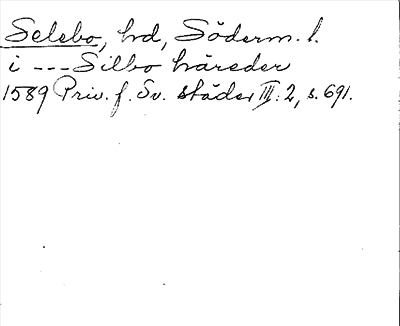 Selebo, hd, Söderm. l.
i --- Silbo häreder
1589 Priv. f. Sv. städer III: 2, s. 691.